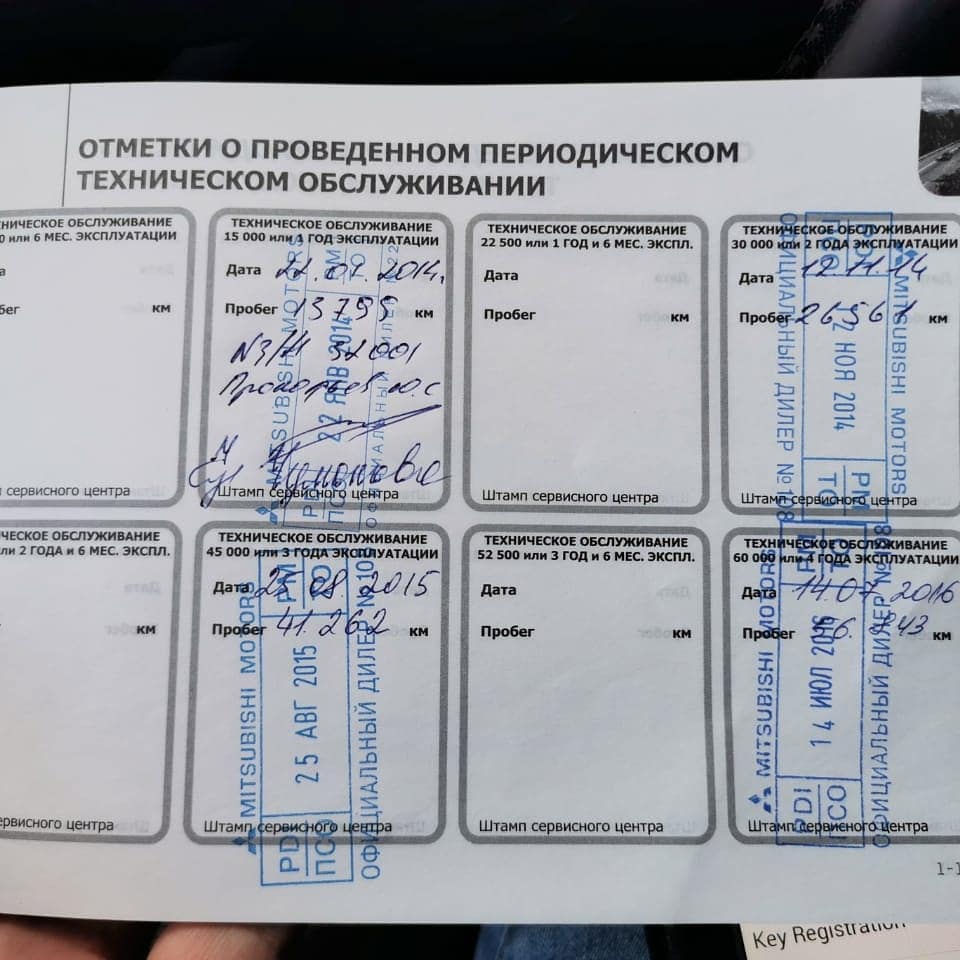 ОТМЕТКИ О ПРОВЕДЕННОМ ПЕРИОДИЧЕСКОМ
ТЕХНИЧЕСКОМ ОБСЛУЖИВАНИИ
ОБСЛУЖИВАНИЕ
или 6 МЕС. ЭКСПЛУАТАЦИИ
км
сервисного центра
ТЕХНИЧЕСКОЕ ОБСЛУЖИВАНИЕ
15 000 или 1 ГОД ЭКСПЛУАТАЦИИ
Дата 22.01.2014г.
Пробег 13799 км
Штамп сервисного центра
MITSUBISHI MOTORS
22 ЯНВ 2014
ОФИЦИАЛЬНЫЙ
ТЕХНИЧЕСКОЕ ОБСЛУЖИВАНИЕ
22 500 или 1 ГОД и 6 МЕС. ЭКСПЛ.
Дата
Пробег км
Штамп сервисного центра
ТЕХНИЧЕСКОЕ ОБСЛУЖИВАНИЕ
30 000 или 2 ГОДА ЭКСПЛУАТАЦИИ
Дата 12.11.14
Пробег 26561 км
Штамп сервисного центра
MITSUBISHI MOTORS
12 НОЯ 2014
PM
ТО
ОФИЦИАЛЬНЫЙ ДИЛЕР №108
ОБСЛУЖИВАНИЕ
или 2 ГОДА и 6 МЕС. ЭКСПЛ.
км
центра
ТЕХНИЧЕСКОЕ ОБСЛУЖИВАНИЕ
45 000 или 3 ГОДА ЭКСПЛУАТАЦИИ
Дата 25.08.2015
Пробег 41.262 км
Штамп сервисного центра
MITSUBISHI MOTORS
PDI PM
25 АВГ 2015
ПСО ТО
ОФИЦИАЛЬНЫЙ ДИЛЕР №108
ТЕХНИЧЕСКОЕ ОБСЛУЖИВАНИЕ
52 500 или 3 ГОД и 6 МЕС. ЭКСПЛ.
Дата
Пробег км
Штамп сервисного центра
ТЕХНИЧЕСКОЕ ОБСЛУЖИВАНИЕ
60 000 или 4 ГОДА ЭКСПЛУАТАЦИИ
Дата 14.07.2016
Пробег км
Штамп сервисного центра
MITSUBISHI MOTORS
PDI
14 ИЮЛ 2016
ПСО
ОФИЦИАЛЬНЫЙ ДИЛЕР №108
Key Registration